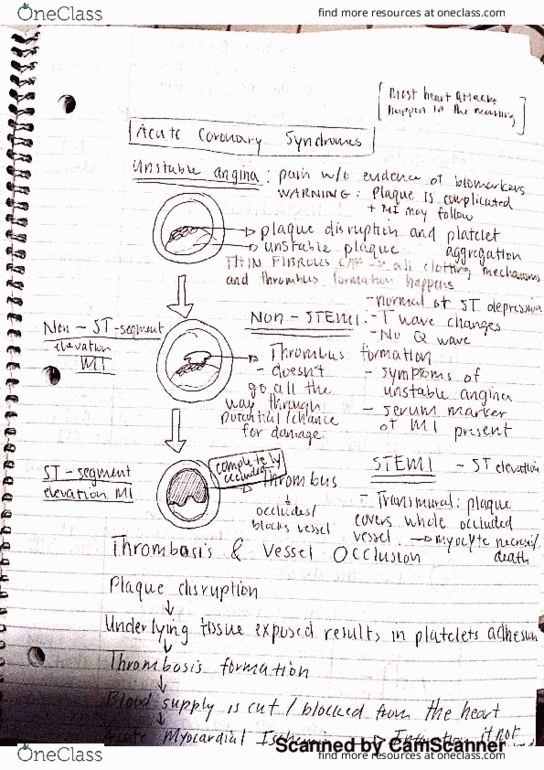 OneClass
find more resources at oneclass.com
[Most heart attacks
happen in the morning]
Acute Coronary Syndromes
Unstable angina : pain w/o evidence of biomarkers
WARNING : Plaque is complicated
+ MI may follow
→ plaque disruption and platelet
→ unstable plaque aggregation
THIN FIBROUS CAP → all clotting mechanisms
and thrombus formation happens
Non-ST-segment
elevation
MI
Non-STEMI: - normal or ST depression
- T wave changes
- No Q wave
→ Thrombus formation
- doesn't
go all the
way through
potential/chance
for damage
- symptoms of
unstable angina
- serum marker
of MI present
ST-segment
elevation MI
completely
occluded
Thrombus
↓
occludes/
blocks vessel
STEMI - ST elevation
- Transmural: plaque
covers whole occluded
vessel. → myocyte necrosis/
death
Thrombosis & Vessel Occlusion
Plaque disruption
↓
Underlying tissue exposed results in platelets adhesion
↓
Thrombosis formation
↓
Blood supply is cut / blocked from the heart
↓
Acute Myocardial Ischemia → if not
Scanned by CamScanner
OneClass
find more resources at oneclass.com